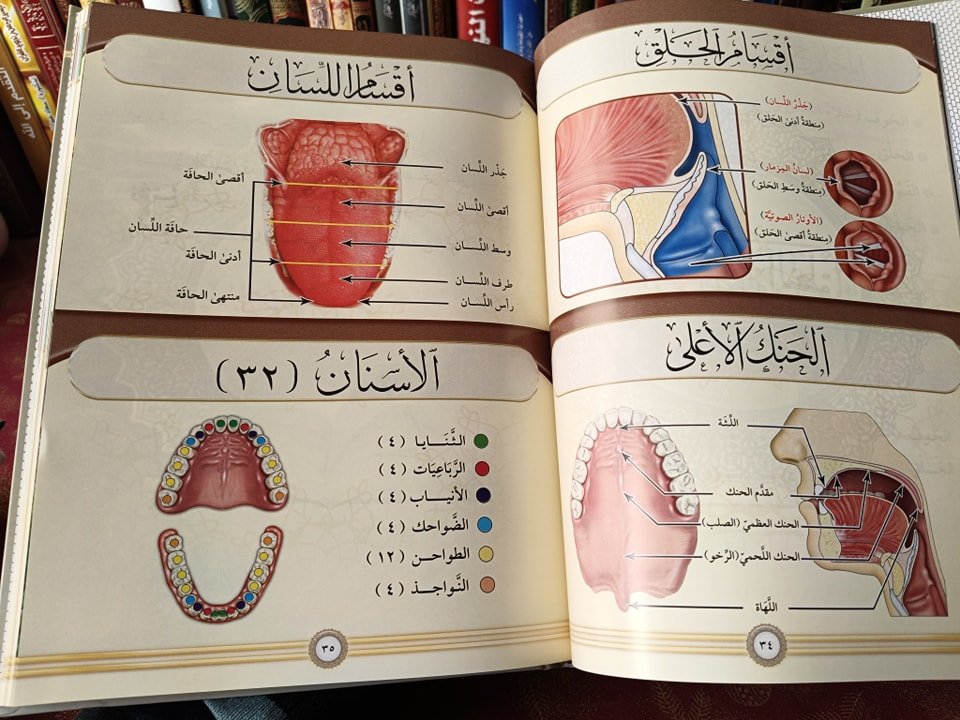 أَقْسَامُ الحَلق
(جَذْرُ اللِّسان)
(مِنطقةُ أدنىٰ الحَلق)
(لسانُ المِزمار)
(مِنطقةُ وسَطِ الحَلق)
(الأوتارُ الصوتيَّة)
(مِنطقةُ أقصىٰ الحَلق)
ٱلحَنَكُ ٱلأَعْلَىٰ
اللِّثَة
مقدَّم الحنك
الحنك العظميّ (الصلب)
الحنك اللَّحميّ (الرِّخو)
اللَّهاة
٣٤
أَقْسَامُ اللِّسَان
جَذْر اللِّسان
أقصىٰ اللِّسان
وسط اللِّسان
طرف اللِّسان
رأس اللِّسان
أقصىٰ الحافَة
حافَة اللِّسان
أدنىٰ الحافَة
منتهىٰ الحافَة
ٱلأَسْنَانُ (٣٢)
الثَّنَايا (٤)
الرَّبَاعِيَات (٤)
الأنياب (٤)
الضَّواحك (٤)
الطواحن (١٢)
النَّواجذ (٤)
٣٥